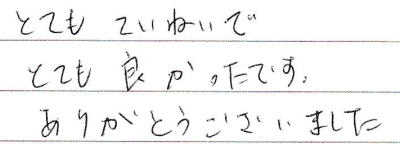 とても ていねいで
とても 良かったです.
ありがとうございました